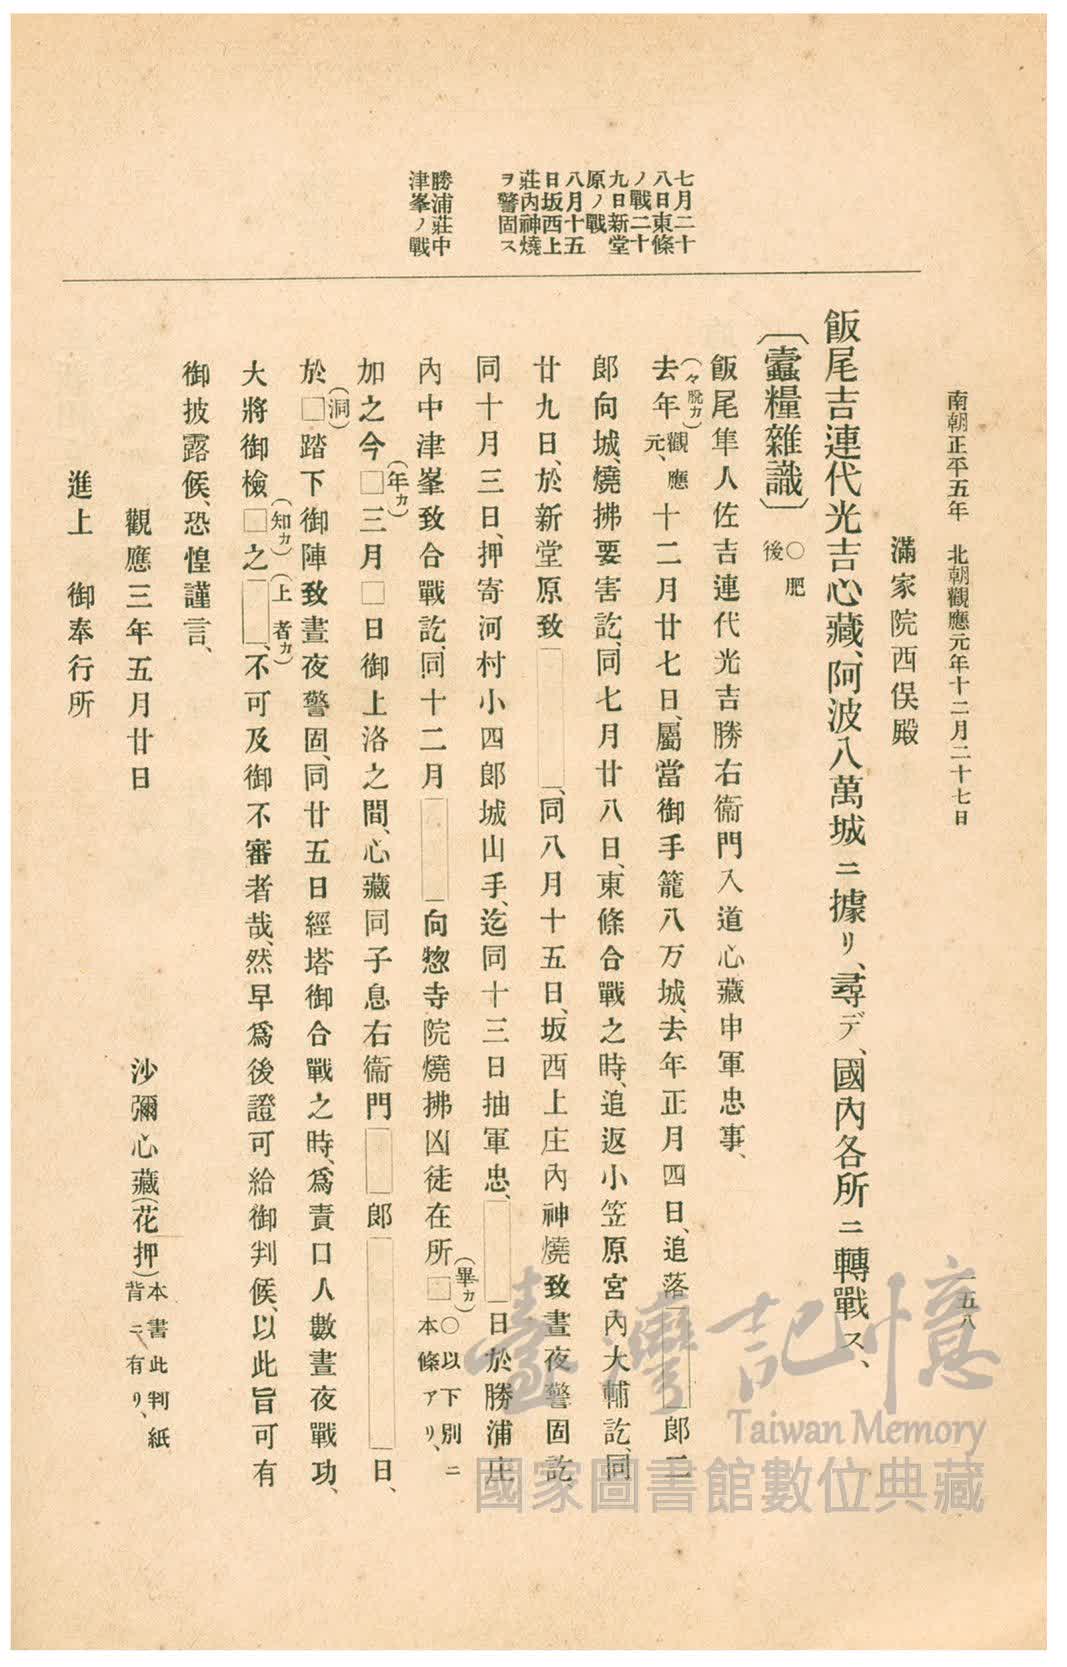 南朝正平五年 北朝觀應元年十二月二十七日
一五八
七月二十
八日東條
ノ戰二十
九日新堂
原ノ戰
八月十五
日坂西上
莊內神燒
ヲ警固ス
勝浦莊中
津峯ノ戰
滿家院西俣殿
飯尾吉連代光吉心藏、阿波八萬城ニ據リ、尋デ、國內各所ニ轉戰ス、
〔蠧糧雜識〕○肥後
飯尾隼人佐吉連代光吉勝右衞門入道心藏申軍忠事、
去(々脫カ)年觀應元、十二月廿七日、屬當御手籠八万城、去年正月四日、追落□郎二
郎向城、燒拂要害訖、同七月廿八日、東條合戰之時、追返小笠原宮內大輔訖、同
廿九日、於新堂原致□、同八月十五日、坂西上庄內神燒致晝夜警固訖、
同十月三日、押寄河村小四郎城山手、迄同十三日抽軍忠、□日於勝浦庄
內中津峯致合戰訖、同十二月□向惣寺院燒拂凶徒在所□(畢カ)○以下別ニ本條アリ、
加之今□(年カ)三月□日御上洛之間、心藏同子息右衞門□郎□日、
於□(洞)踏下御陣致晝夜警固、同廿五日經塔御合戰之時、爲責口人數晝夜戰功、
大將御檢□(知カ)之□(上者カ)、不可及御不審者哉、然早爲後證可給御判候、以此旨可有
御披露候、恐惶謹言、
觀應三年五月廿日
沙彌心藏(花押)本書此判紙背ニ有リ、
進上 御奉行所
臺灣記憶
Taiwan Memory
國家圖書館數位典藏